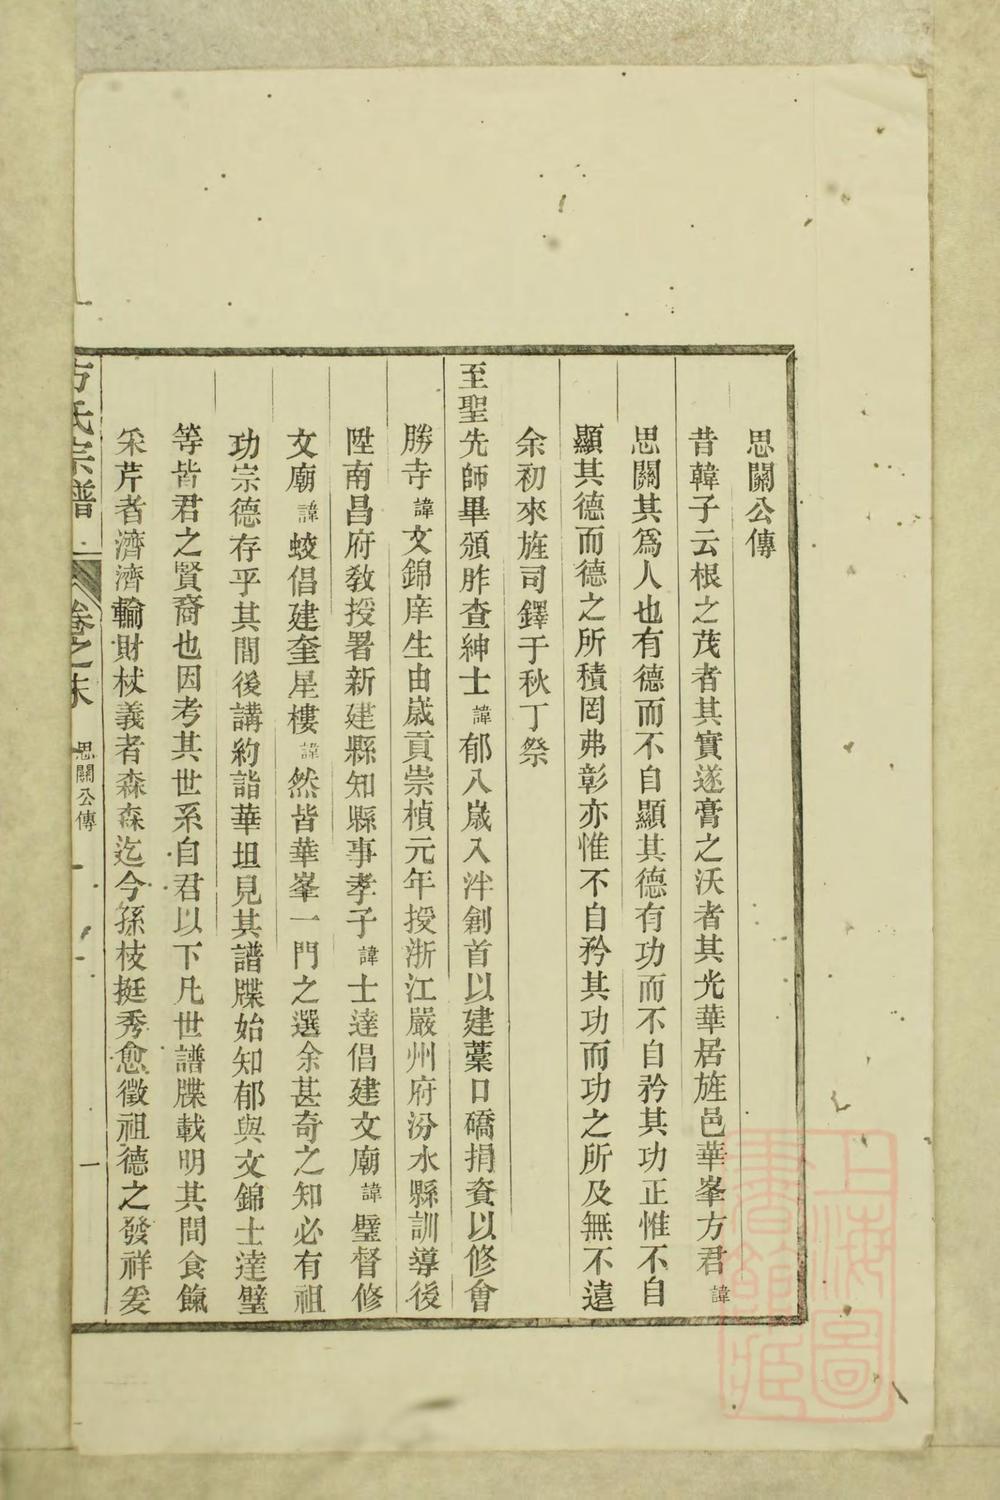 思關公傳
昔韓子云根之茂者其實遂膏之沃者其光華居旌邑華峯方君諱
思關其爲人也有德而不自顯其德有功而不自矜其功正惟不自
顯其德而德之所積罔弗彰亦惟不自矜其功而功之所及無不遠
余初來旌司鐸于秋丁祭
至聖先師畢頒胙查紳士諱郁八歲入泮創首以建藁口礄捐資以修會
勝寺諱文錦庠生由歲貢崇楨元年授浙江嚴州府汾水縣訓導後
陞南昌府教授署新建縣知縣事孝子諱士達倡建文廟諱璧督修
文廟諱蛟倡建奎星樓諱然皆華峯一門之選余甚奇之知必有祖
功宗德存乎其間後講約詣華坦見其譜牒始知郁與文錦士達璧
等皆君之賢裔也因考其世系自君以下凡世譜牒載明其間食餼
采芹者濟濟輸財杖義者森森迄今孫枝挺秀愈徵祖德之發祥爰
方氏宗譜 卷之末 思關公傳 一
上海圖書館藏